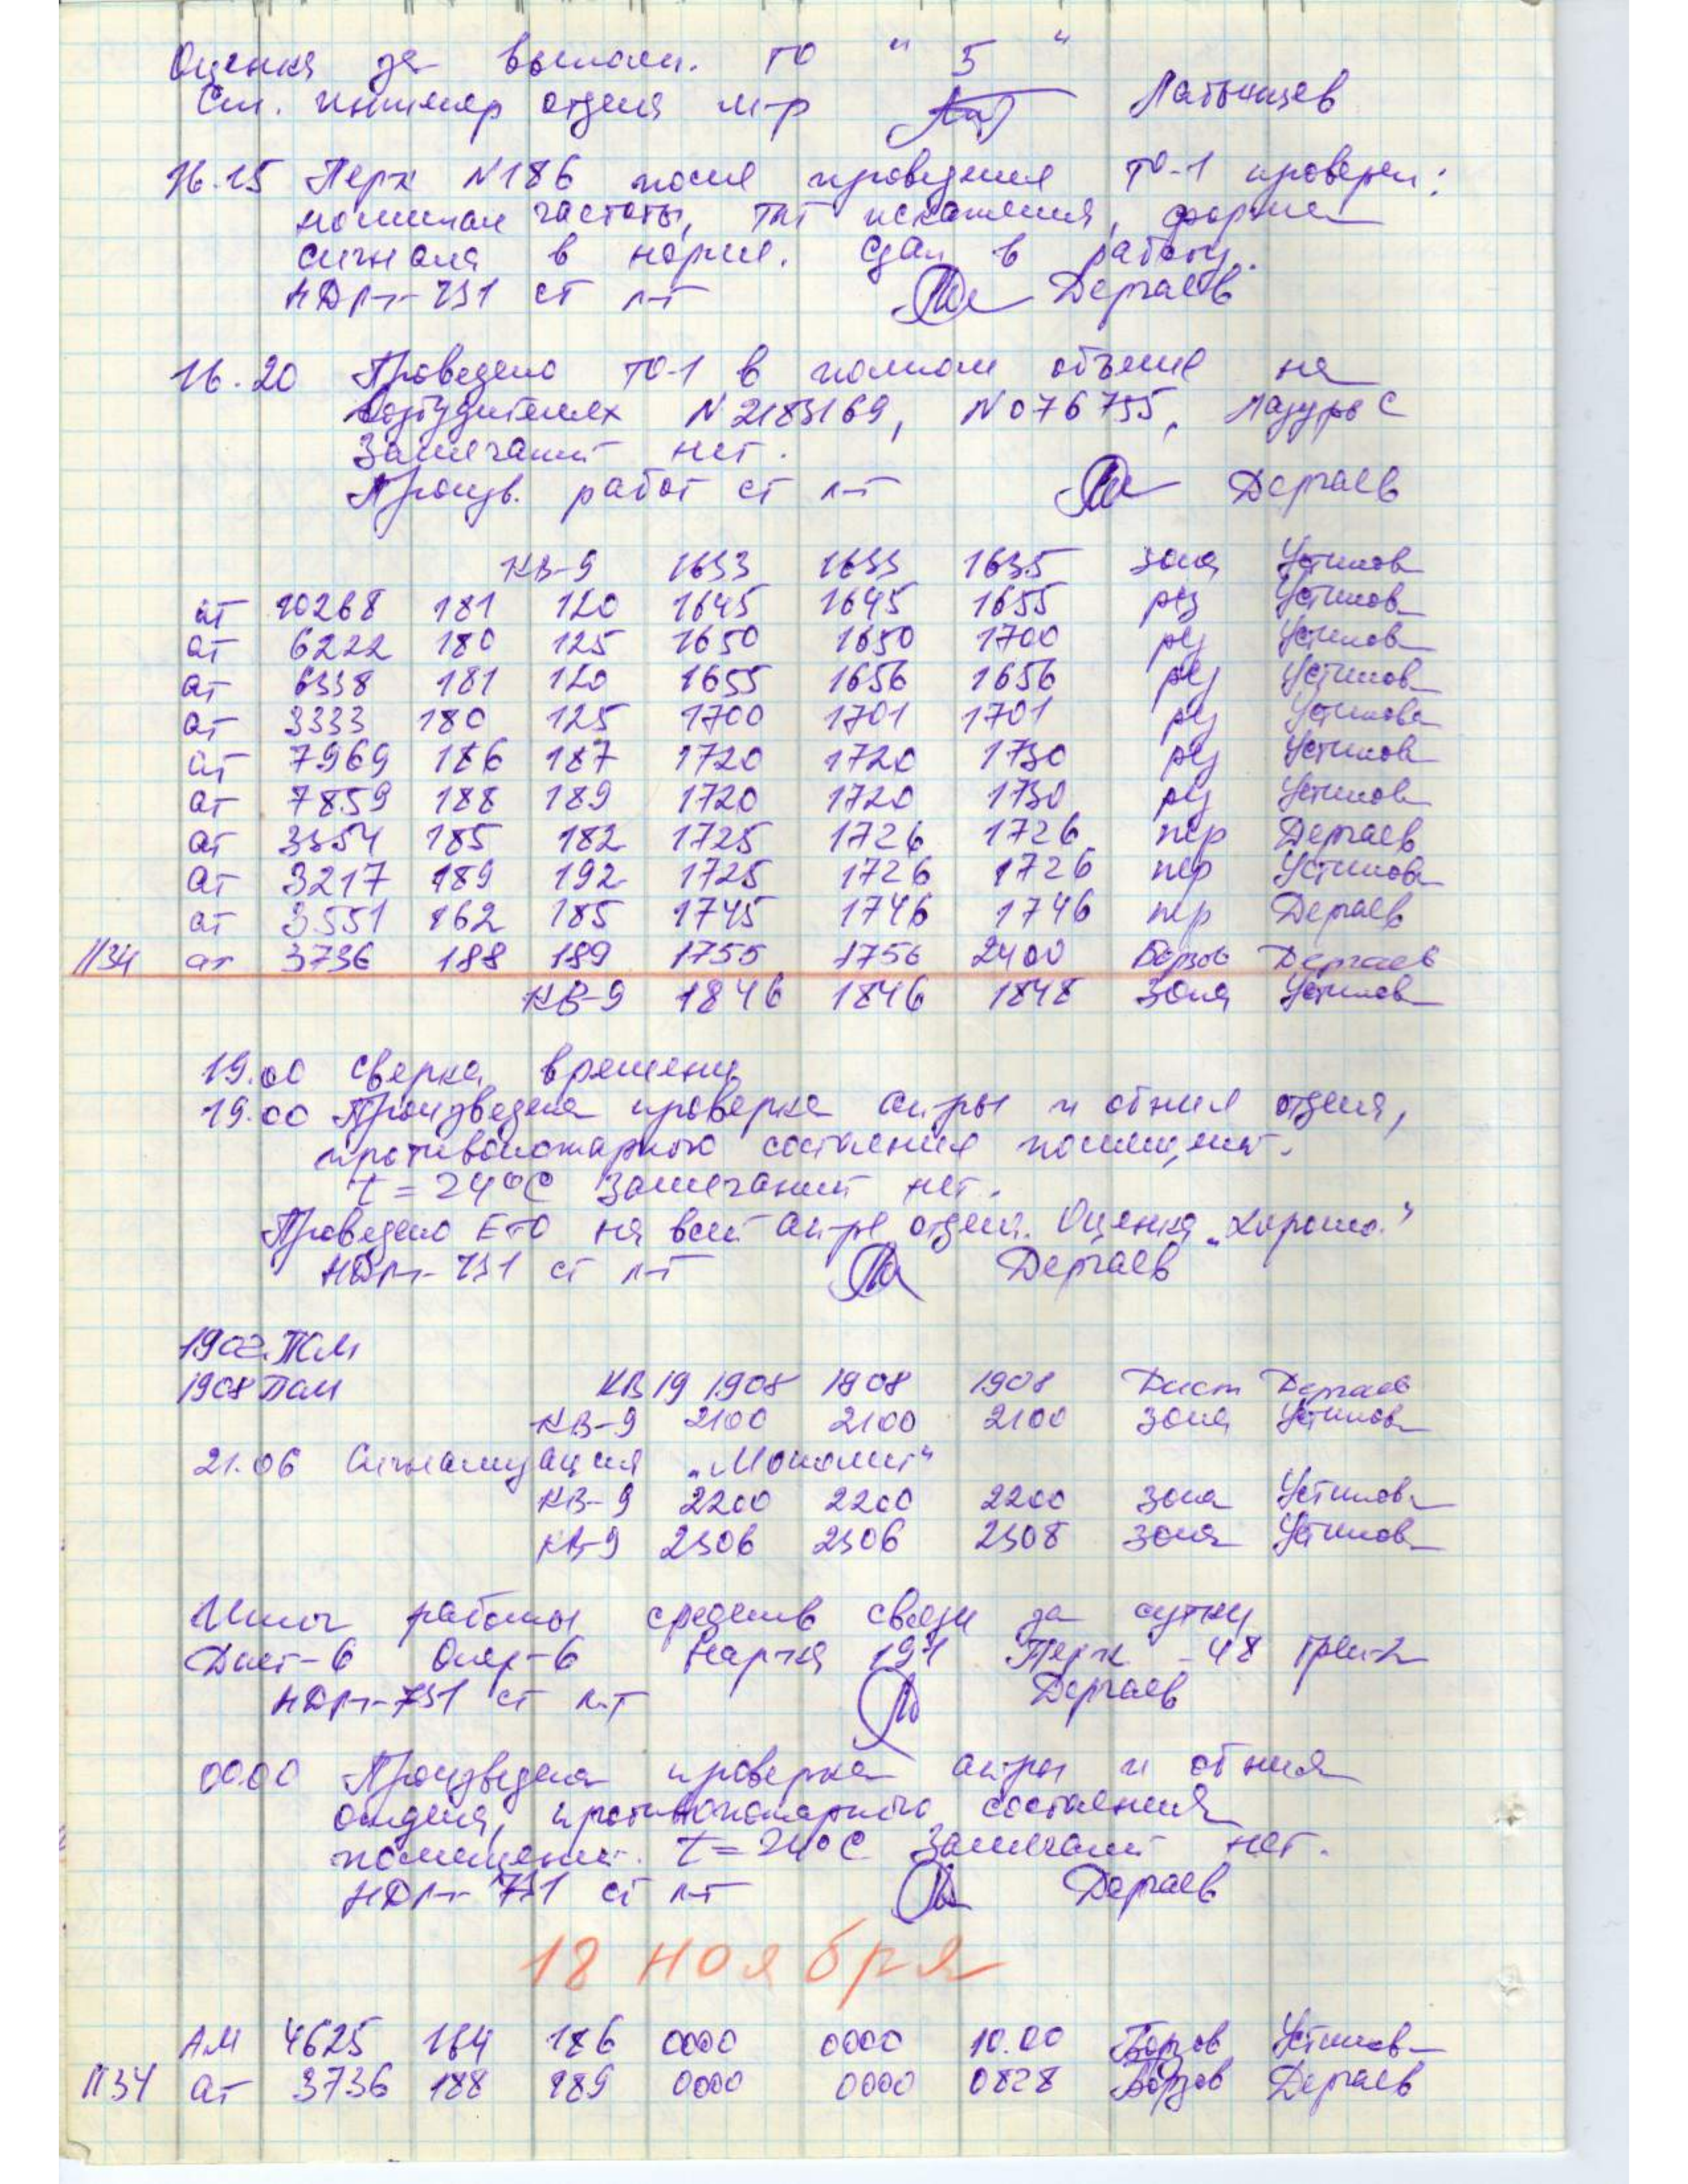 Оценка за выполн. ТО " 5 "
См. инженер отдел м-р Латынцев
16.15 Перк N186 после проведения ТО-1 проверен:
номинал частоты, тлг искажения, форма
сигнала в норме. Сдан в работу.
НДРП-731 ст л-т Дергаев
16.20 Проведено ТО-1 в полном объеме на
возбудителях N2183169, N076755, Лазурь С
Замечаний нет.
Произв. работ ст л-т Дергаев
КВ-9 1633 1633 1635 зона Устинов
ат 10268 181 120 1645 1645 1655 рез Устинов
ат 6222 180 125 1650 1650 1700 рез Устинов
ат 6338 181 120 1655 1656 1656 рез Устинов
ат 3333 180 125 1700 1701 1701 рез Устинов
ат 7969 186 187 1720 1720 1730 рез Устинов
ат 7859 188 189 1720 1720 1730 рез Устинов
ат 3354 185 182 1725 1726 1726 пер Дергаев
ат 3217 189 192 1725 1726 1726 пер Устинов
ат 3551 162 185 1745 1746 1746 пер Дергаев
1134 ат 3736 188 189 1755 1756 2400 Борзов Дергаев
КВ-9 1846 1846 1848 зона Устинов
19.00 Сверка времени
19.00 Произведена проверка ап-ры и обния отдел,
противопожарного состояния помещений.
t = 24°C Замечаний нет.
Проведено ЕТО на всей ап-ре отдел. Оценка „Хорошо."
НДРП-731 ст л-т Дергаев
1902 ПСМ
1908 ПСМ КВ 19 1908 1908 1908 Дист Дергаев
КВ-9 2100 2100 2100 зона Устинов
21.06 Сигнализация „Монолит"
КВ-9 2200 2200 2200 зона Устинов
КВ-9 2306 2306 2308 зона Устинов
Итог работы средств связи за сутки
Дист-6 Опер-6 191 Перк - 48
НДРП-731 ст л-т Дергаев
00.00 Произведена проверка ап-ры и обния
отдел, противопожарного состояния
помещений. t = 24°C Замечаний нет.
НДРП-731 ст л-т Дергаев
18 ноября
АМ 4625 184 186 0000 0000 10.00 Борзов Устинов
1134 ат 3736 188 189 0000 0000 0828 Борзов Дергаев